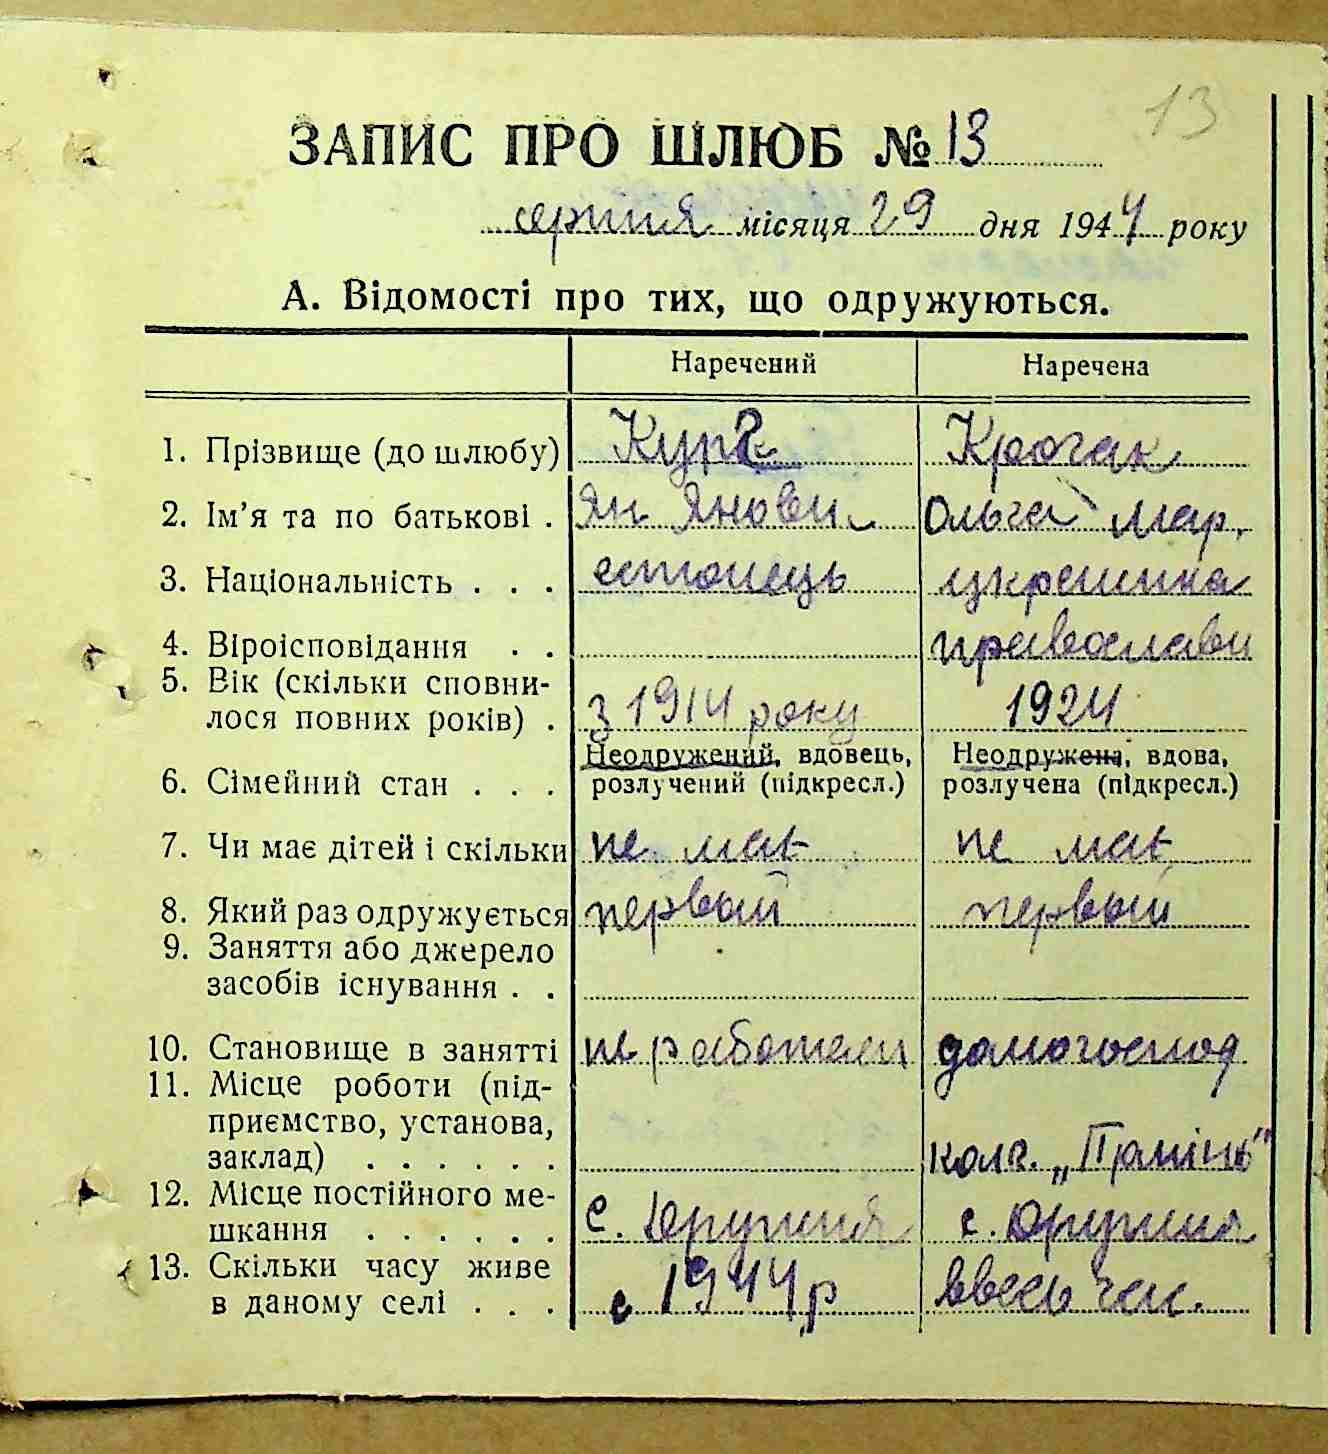 13
ЗАПИС ПРО ШЛЮБ № 13
серпня місяця 29 дня 1944 року
А. Відомості про тих, що одружуються.
Наречений Наречена
1. Прізвище (до шлюбу) Крочак
2. Ім’я та по батькові . Ян Янови Ольга Мар.
3. Національність . . . естонець украинка
4. Віроісповідання . . православн
5. Вік (скільки сповни-
лося повних років) . з 1914 року 1924
Неодружений, вдовець, Неодружена, вдова,
6. Сімейний стан . . . розлучений (підкресл.) розлучена (підкресл.)
7. Чи має дітей і скільки не має не має
8. Який раз одружується первый первый
9. Заняття або джерело
засобів існування . .
10. Становище в занятті не работает домогоспод
11. Місце роботи (під-
приємство, установа,
заклад) . . . . . . колг. „Промінь“
12. Місце постійного ме-
шкання . . . . . . с. с.
13. Скільки часу живе
в даному селі . . . с 1944 р ввесь час.